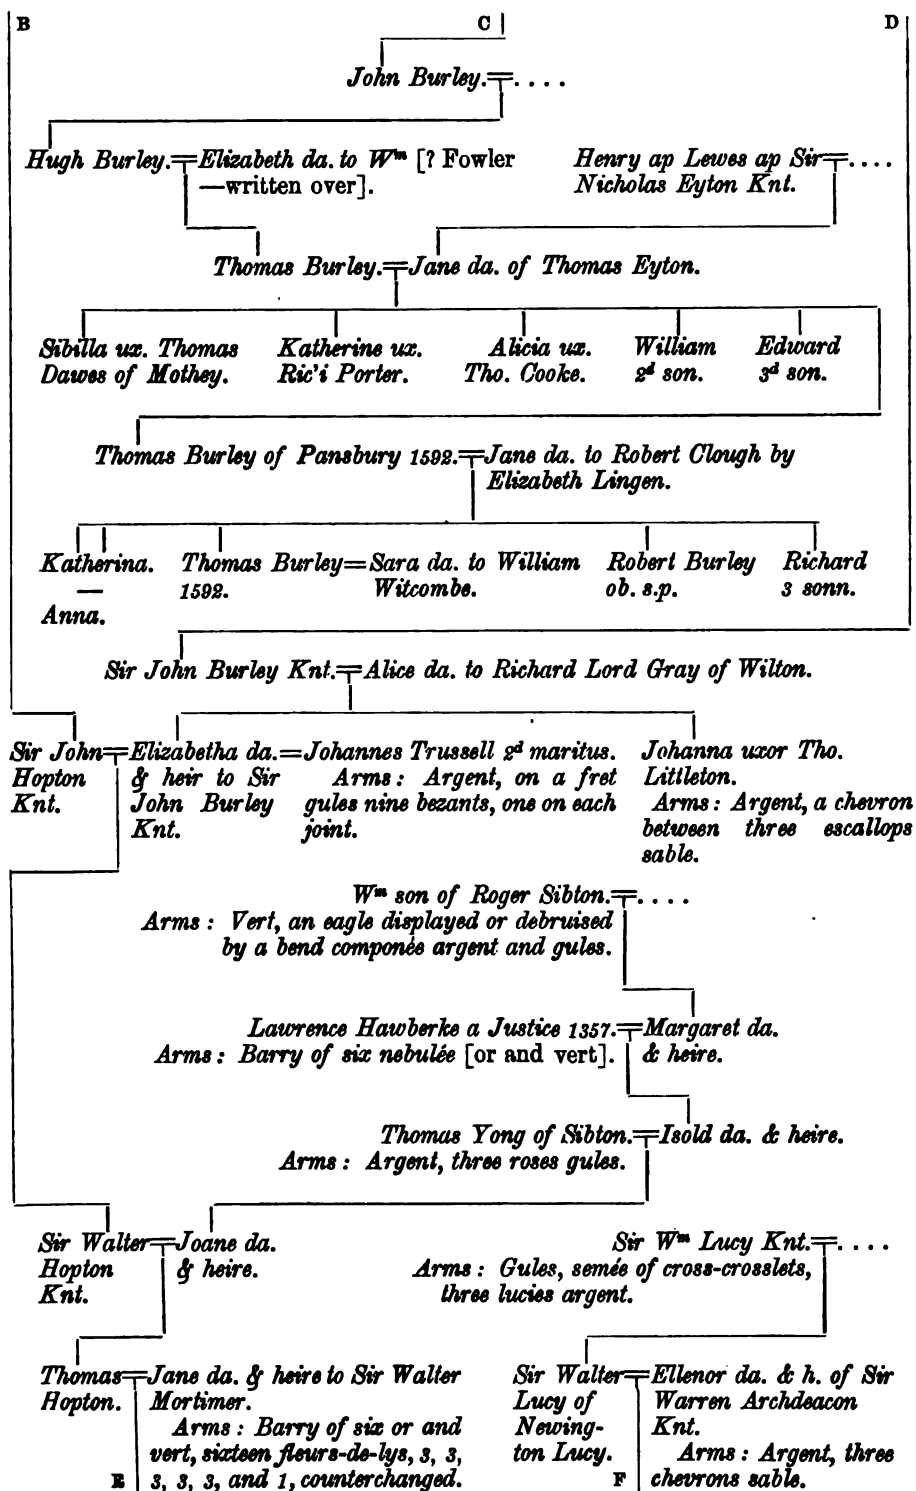 B C D
John Burley. = . . . .
Hugh Burley. = Elizabeth da. to Wm [? Fowler
—written over].
Henry ap Lewes ap Sir = . . . .
Nicholas Eyton Knt.
Thomas Burley. = Jane da. of Thomas Eyton.
Sibilla ux. Thomas
Dawes of Mothey.
Katherine ux.
Ric'i Porter.
Alicia ux.
Tho. Cooke.
William
2d son.
Edward
3d son.
Thomas Burley of Pansbury 1592. = Jane da. to Robert Clough by
Elizabeth Lingen.
Katherina.
—
Anna.
Thomas Burley = Sara da. to William
1592. Witcombe.
Robert Burley
ob. s.p.
Richard
3 sonn.
Sir John Burley Knt. = Alice da. to Richard Lord Gray of Wilton.
Sir John =
Hopton
Knt.
Elizabetha da. =
& heir to Sir
John Burley
Knt.
Johannes Trussell 2d maritus.
Arms : Argent, on a fret
gules nine bezants, one on each
joint.
Johanna uxor Tho.
Littleton.
Arms : Argent, a chevron
between three escallops
sable.
Wm son of Roger Sibton. = . . . .
Arms : Vert, an eagle displayed or debruised
by a bend componée argent and gules.
Lawrence Hawberke a Justice 1357. = Margaret da.
Arms : Barry of six nebulée [or and vert]. & heire.
Thomas Yong of Sibton. = Isold da. & heire.
Arms : Argent, three roses gules.
Sir Walter = Joane da.
Hopton & heire.
Knt.
Sir Wm Lucy Knt. = . . . .
Arms : Gules, semée of cross-crosslets,
three lucies argent.
Thomas =
Hopton.
Jane da. & heire to Sir Walter
Mortimer.
Arms : Barry of six or and
vert, sixteen fleurs-de-lys, 3, 3,
3, 3, 3, and 1, counterchanged.
E
Sir Walter =
Lucy of
Newing-
ton Lucy.
Ellenor da. & h. of Sir
Warren Archdeacon
Knt.
Arms : Argent, three
chevrons sable.
F